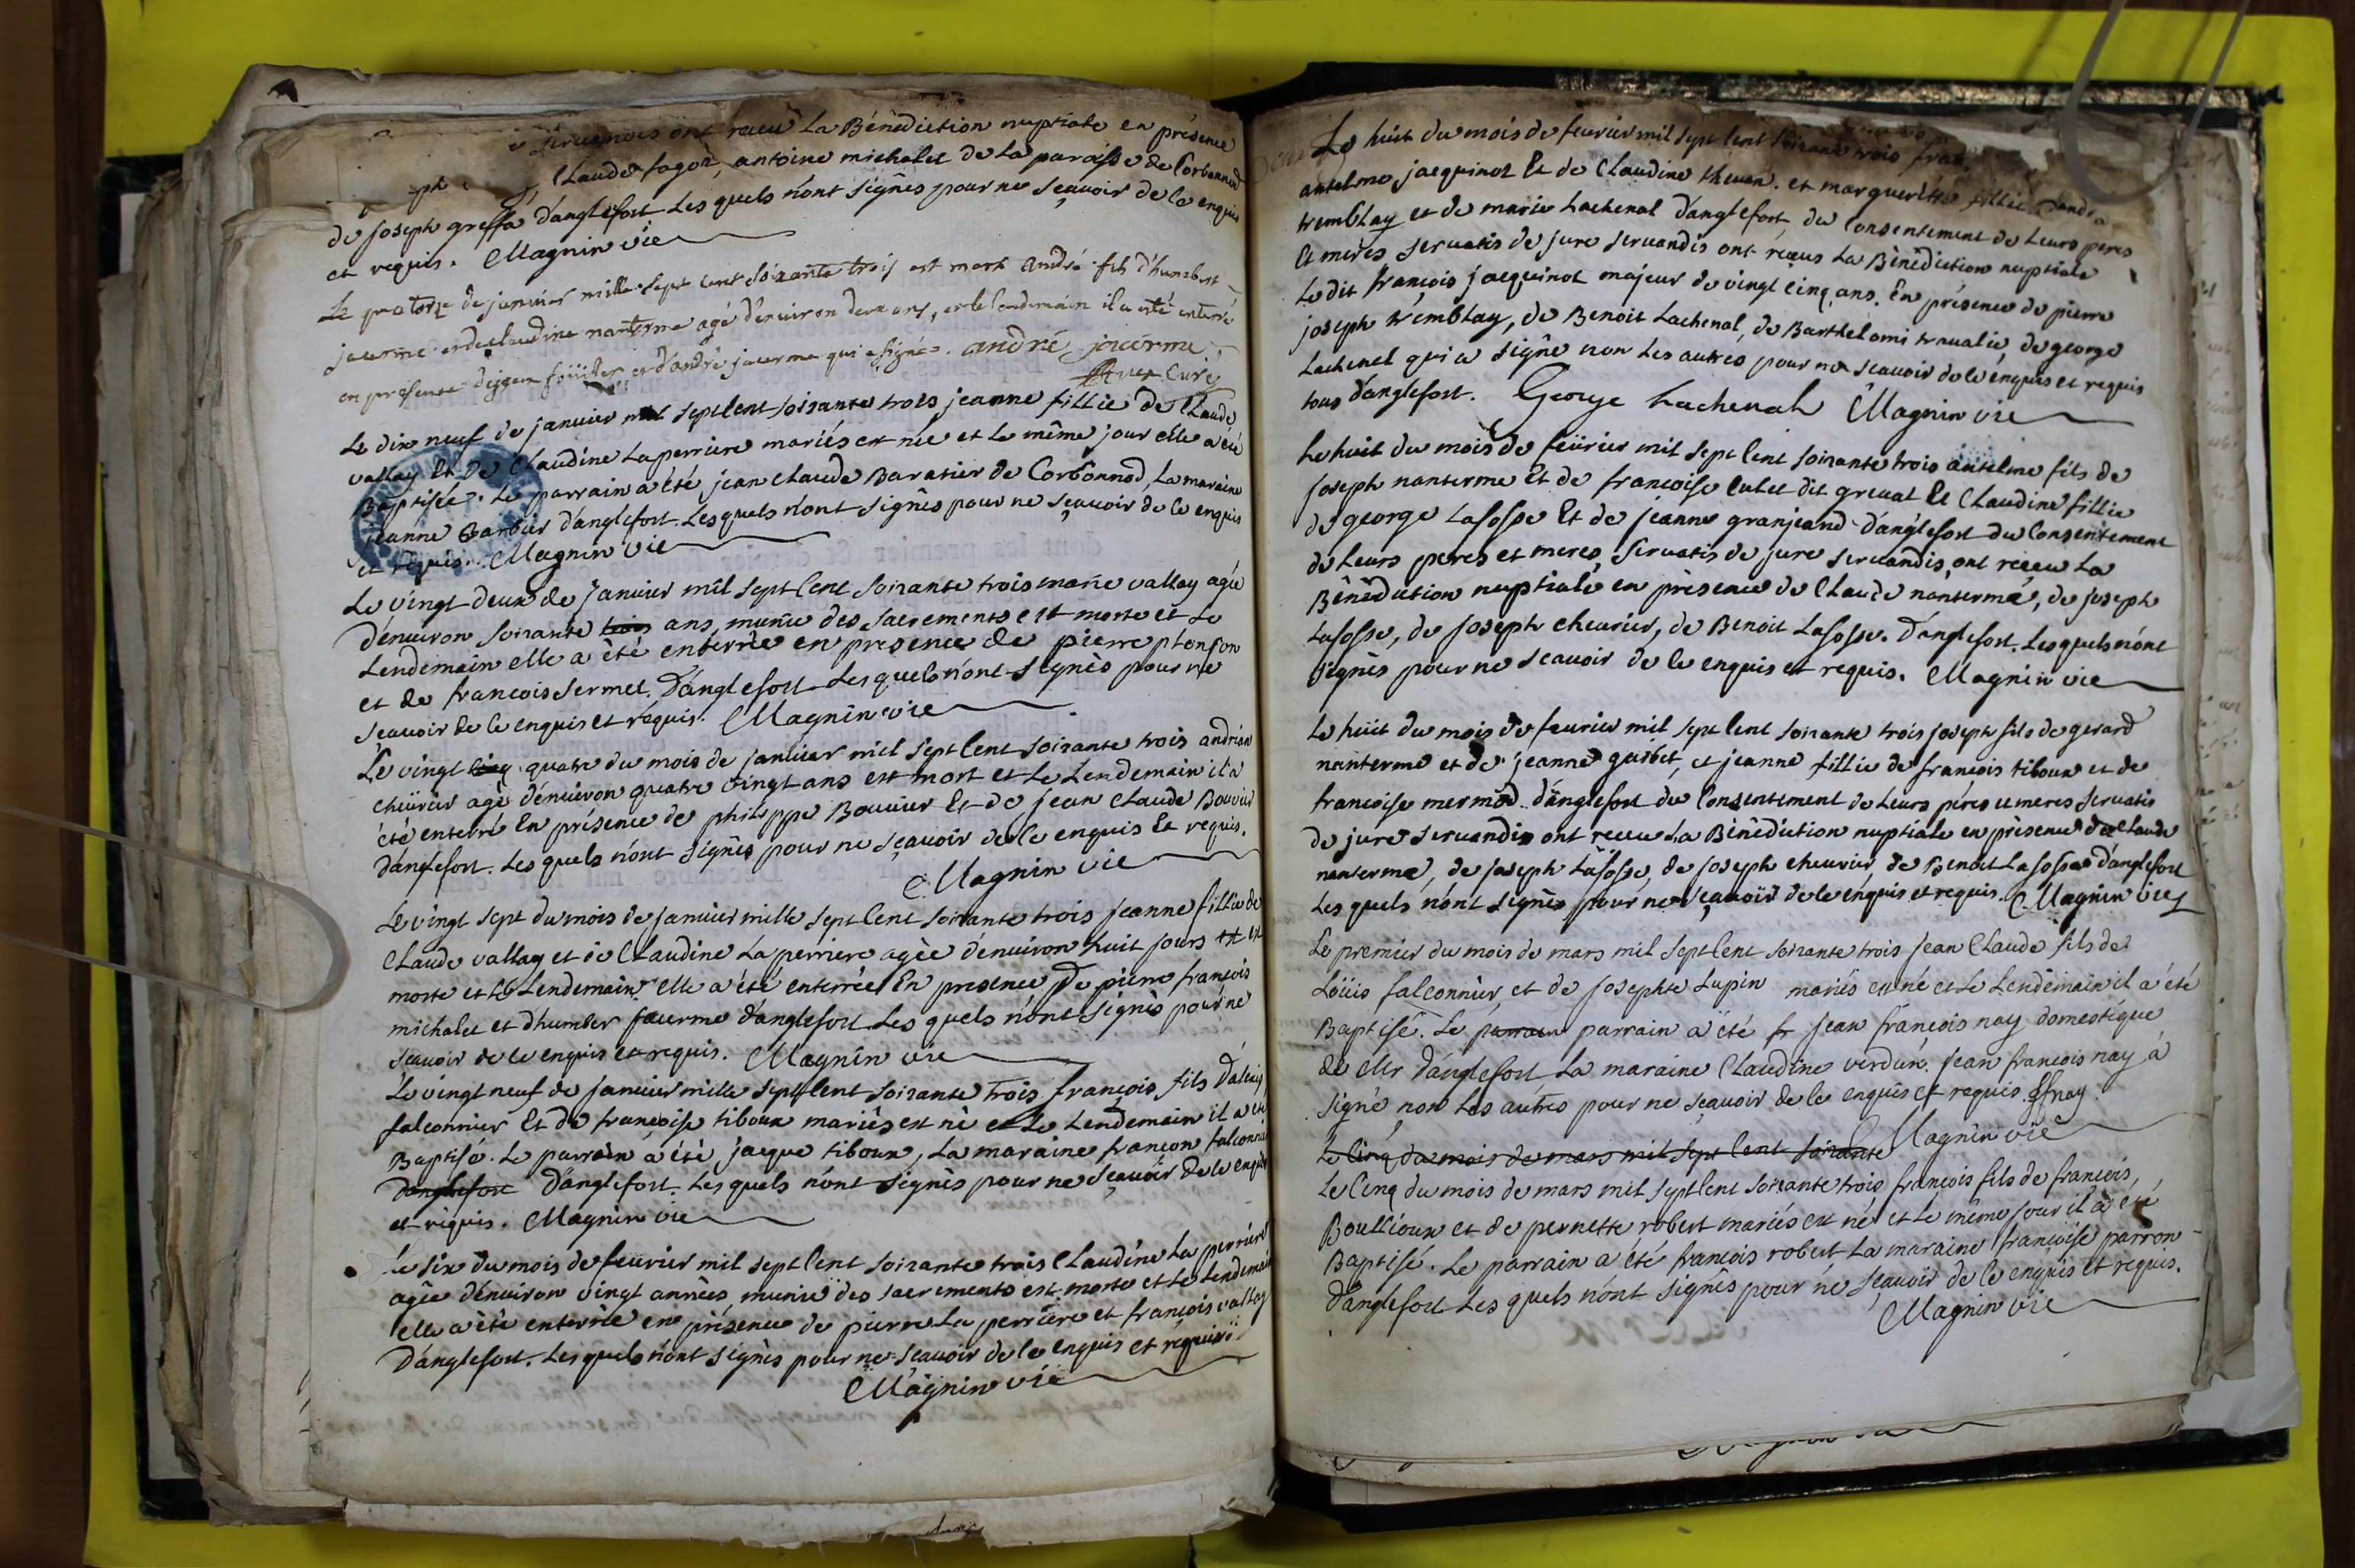 servandis ont receu La Bénédiction nuptiale en présence
Claude fagot, antoine michalet de La paroisse de Corbonnod
de joseph greffa d'anglefort Les quels n'ont signés pour ne sçavoir de ce enquis
et requis. Magnin vic
Le quatorze de janvier mille sept cent soixante trois est mort andré fils d'humbert
jacerme et de claudine nanterme agé d'environ deux ans, et le lendemain il a eté enterré
en présence et d'andré jacerme qui a signé. andré jacerme
Curé
Le dix neuf de janvier mil sept Cent soixante trois jeanne fillie de Claude
vallay Et de Claudine Laperriere mariés est née et Le même jour elle a été
Baptisée. Le parrain a été jean Claude Baratier de Corbonnod, La maraine
jeanne Barbier d'anglefort. Lesquels n'ont signés pour ne sçavoir de ce enquis
et requis. Magnin vic
Le vingt deux de janvier mil sept Cent soixante trois marie vallay agée
d'environ soixante trois ans, munie des sacrements est morte et Le
Lendemain elle a été enterrée en presence de pierre ptonson
et de francois sermet. D'anglefort Les quels n'ont signés pour ne
sçavoir de ce enquis et requis. Magnin vic
Le vingt cinq quatre du mois de janvier mil sept Cent soixante trois andrian
cheurier agé d'environ quatre vingt ans est mort et Le Lendemain il a
été enterré En présence de philippe Bouvier Et de jean Claude Bouvier
d'anglefort. Les quels n'ont signés pour ne sçavoir de ce enquis Et requis.
Magnin vic
Le vingt sept du mois de janvier mille sept Cent soixante trois jeanne fillie de
Claude vallay et de Claudine La perriere agée d'environ huit jours est
morte et Le Lendemain elle a été enterrée En presence De pierre françois
michalet et d'humber jacerme d'anglefort Les quels n'ont signés pour ne
sçavoir de ce enquis et requis. Magnin vic
Le vingt neuf de janvier mille sept Cent soixante trois françois fils
falconnier Et de françoise tiboux mariés est né et Le Lendemain il a été
Baptisé. Le parrain a été jacque tiboux, La maraine françon falconnier
d'anglefort D'anglefort. Les quels n'ont signés pour ne sçavoir de ce enquis
et requis. Magnin vic
Le six du mois de feuvrier mil sept Cent soixante trois Claudine La perriere
agée d'environ vingt années, munie des sacrements est morte et Le Lendemain
elle a été enterrée en présence de pierre La perriere et françois vallay
D'anglefort. Les quels n'ont signés pour ne sçavoir de ce enquis et requis
Magnin vic
Le huit du mois de feuvrier mil sept Cent soixante trois
antelme jacquinot Et de Claudine thevan. et marguerite fillie d'andré
tremblay et de marie Lachenal d'anglefort, du Consentement de Leurs peres
Et meres servatis de jure servandis ont receus La Bénédiction nuptiale
Le dit françois jacquinot majeur de vingt cinq ans. En présence de pierre
joseph tremblay, de Benoit Lachenal, de Barthelomi travalié, de george
Lachenal qui a signé non Les autres pour ne sçavoir de ce enquis et requis
tous d'anglefort. George Lachenal Magnin vic
Le huit du mois de feuvrier mil sept Cent soixante trois antelme fils de
joseph nanterme Et de françoise dit grevat Et Claudine fillie
de george Lafosse Et de jeanne granjeand d'anglefort du Consentement
de Leurs peres et meres, servatis de jure servandis, ont receu La
Bénédiction nuptiale en présence de Claude nanterme, de joseph
Lafosse, de joseph cheurier, de Benoit Lafosse. D'anglefort. Lesquels n'ont
signés pour ne sçavoir de ce enquis et requis. Magnin vic
Le huit du mois de feuvrier mil sept Cent soixante trois joseph fils de gerard
nanterme et de jeanne garbet, et jeanne fillie de françois tiboux et de
françoise mermod. d'anglefort du Consentement de Leurs péres et meres servatis
de jure servandis ont receu La Bénédiction nuptiale en présence de Claude
nanterme, de joseph Lafosse, de joseph cheurier, de Benoit Lafosse d'anglefort
Les quels n'ont signés pour ne sçavoir de ce enquis et requis. Magnin vic
Le premier du mois de mars mil sept Cent soixante trois jean Claude fils de
Loüis falconnier, et de josephte Lupin mariés est né et Le Lendemain il a été
Baptisé. Le parrain parrain a été fr jean françois nay domestique
de Mr d'anglefort, La maraine Claudine verdun. jean françois nay a
signé non Les autres pour ne sçavoir de ce enquis et requis. jfnay
Le Cinq du mois de mars mil sept Cent soixante Magnin vic
Le Cinq du mois de mars mil sept Cent soixante trois françois fils de françois,
Boullioux et de pernette robert mariés est né et Le même jour il a été
Baptisé. Le parrain a été françois robert La maraine françoise parron
d'anglefort Les quels n'ont signés pour ne sçavoir de ce enquis et requis.
Magnin vic